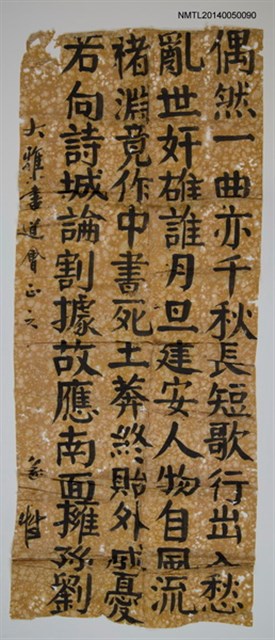 NMTL20140050090
偶然一曲亦千秋長短歌行出入愁
亂世奸雄誰月旦建安人物自風流
褚淵竟作中書死王莽終貽外戚憂
若向詩城論割據故應南面擁孫劉
大雅書道會正之